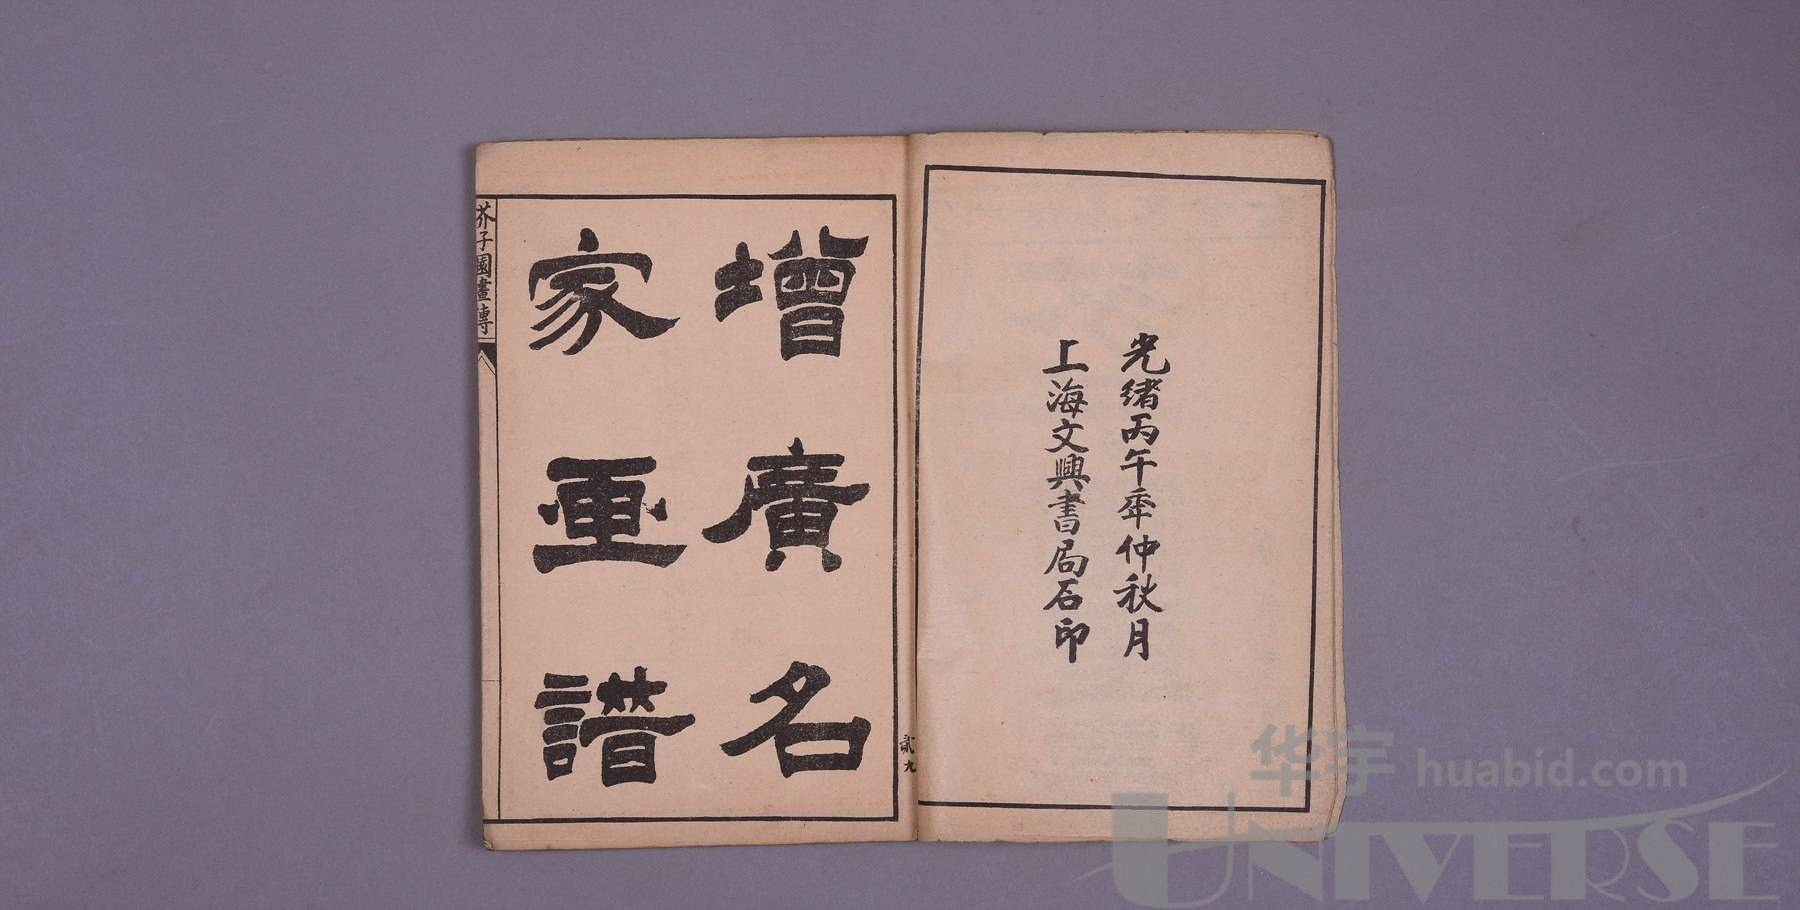 光緒丙午年仲秋月
上海文興書局石印
增廣名
家画譜
芥子園畫傳
貳九
华宇 huabid.com
UNIVERSE